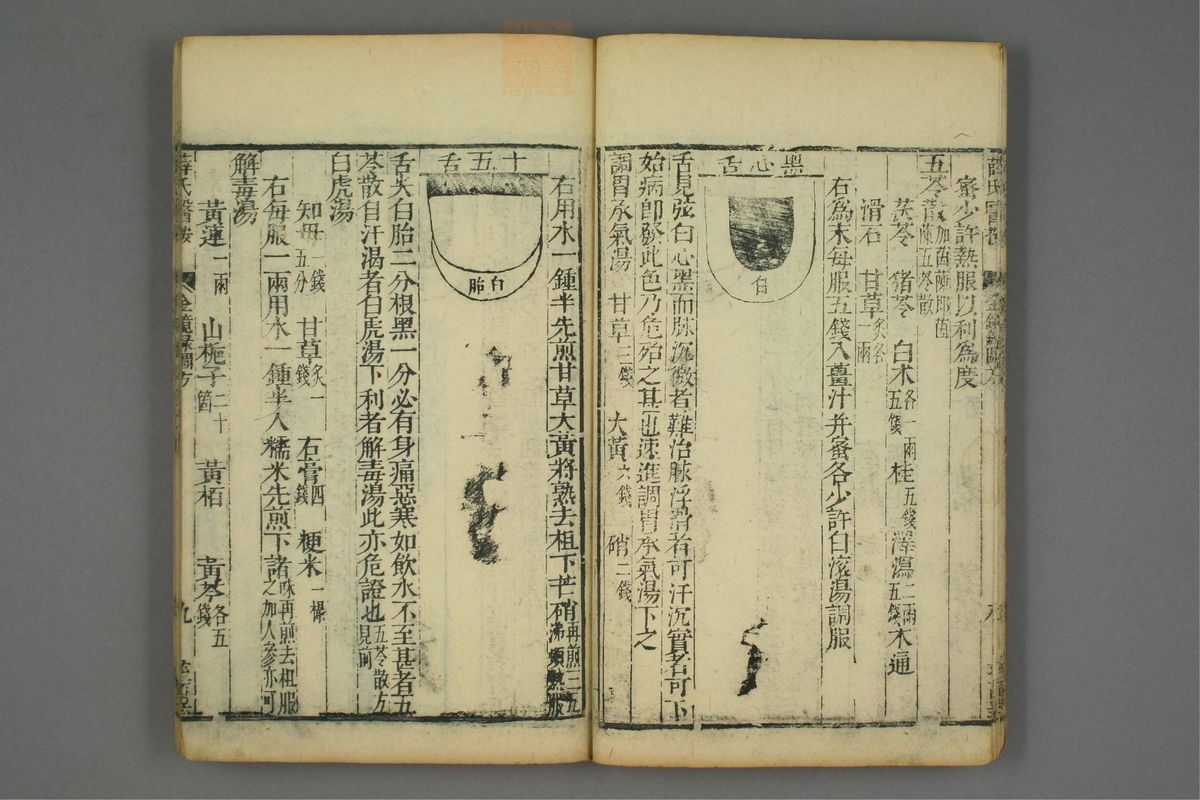 蜜少許熱服以利爲度
五苓散加茵蔯卽茵蔯五苓散
茯苓 猪苓 白术各一兩五錢 桂五錢 澤瀉二兩五錢 木通
滑石 甘草炙各一兩
右爲末每服五錢入薑汁并蜜各少許白滚湯調服
黑心舌
白
舌見弦白心黑而脉沉微者難治脉浮滑者可汗沉實者可下
始病卽發此色乃危殆之甚也速進調胃承氣湯下之
調胃承氣湯 甘草三錢 大黃六錢 硝二錢
右用水一鍾半先煎甘草大黃將熟去柤下芒硝再煎三五沸頓熱服
十五舌
白胎
舌尖白胎二分根黑一分必有身痛惡寒如飲水不至甚者五
苓散自汗渴者白虎湯下利者解毒湯此亦危證也五苓散方見前
白虎湯
知母一錢五分 甘草炙一錢 石膏四錢 粳米一撮
右每服一兩用水一鍾半入糯米先煎下諸味再煎去柤服之加人參亦可
解毒湯
黃連一兩 山梔子二十箇 黃栢 黃芩各五錢
薛氏醫按
九